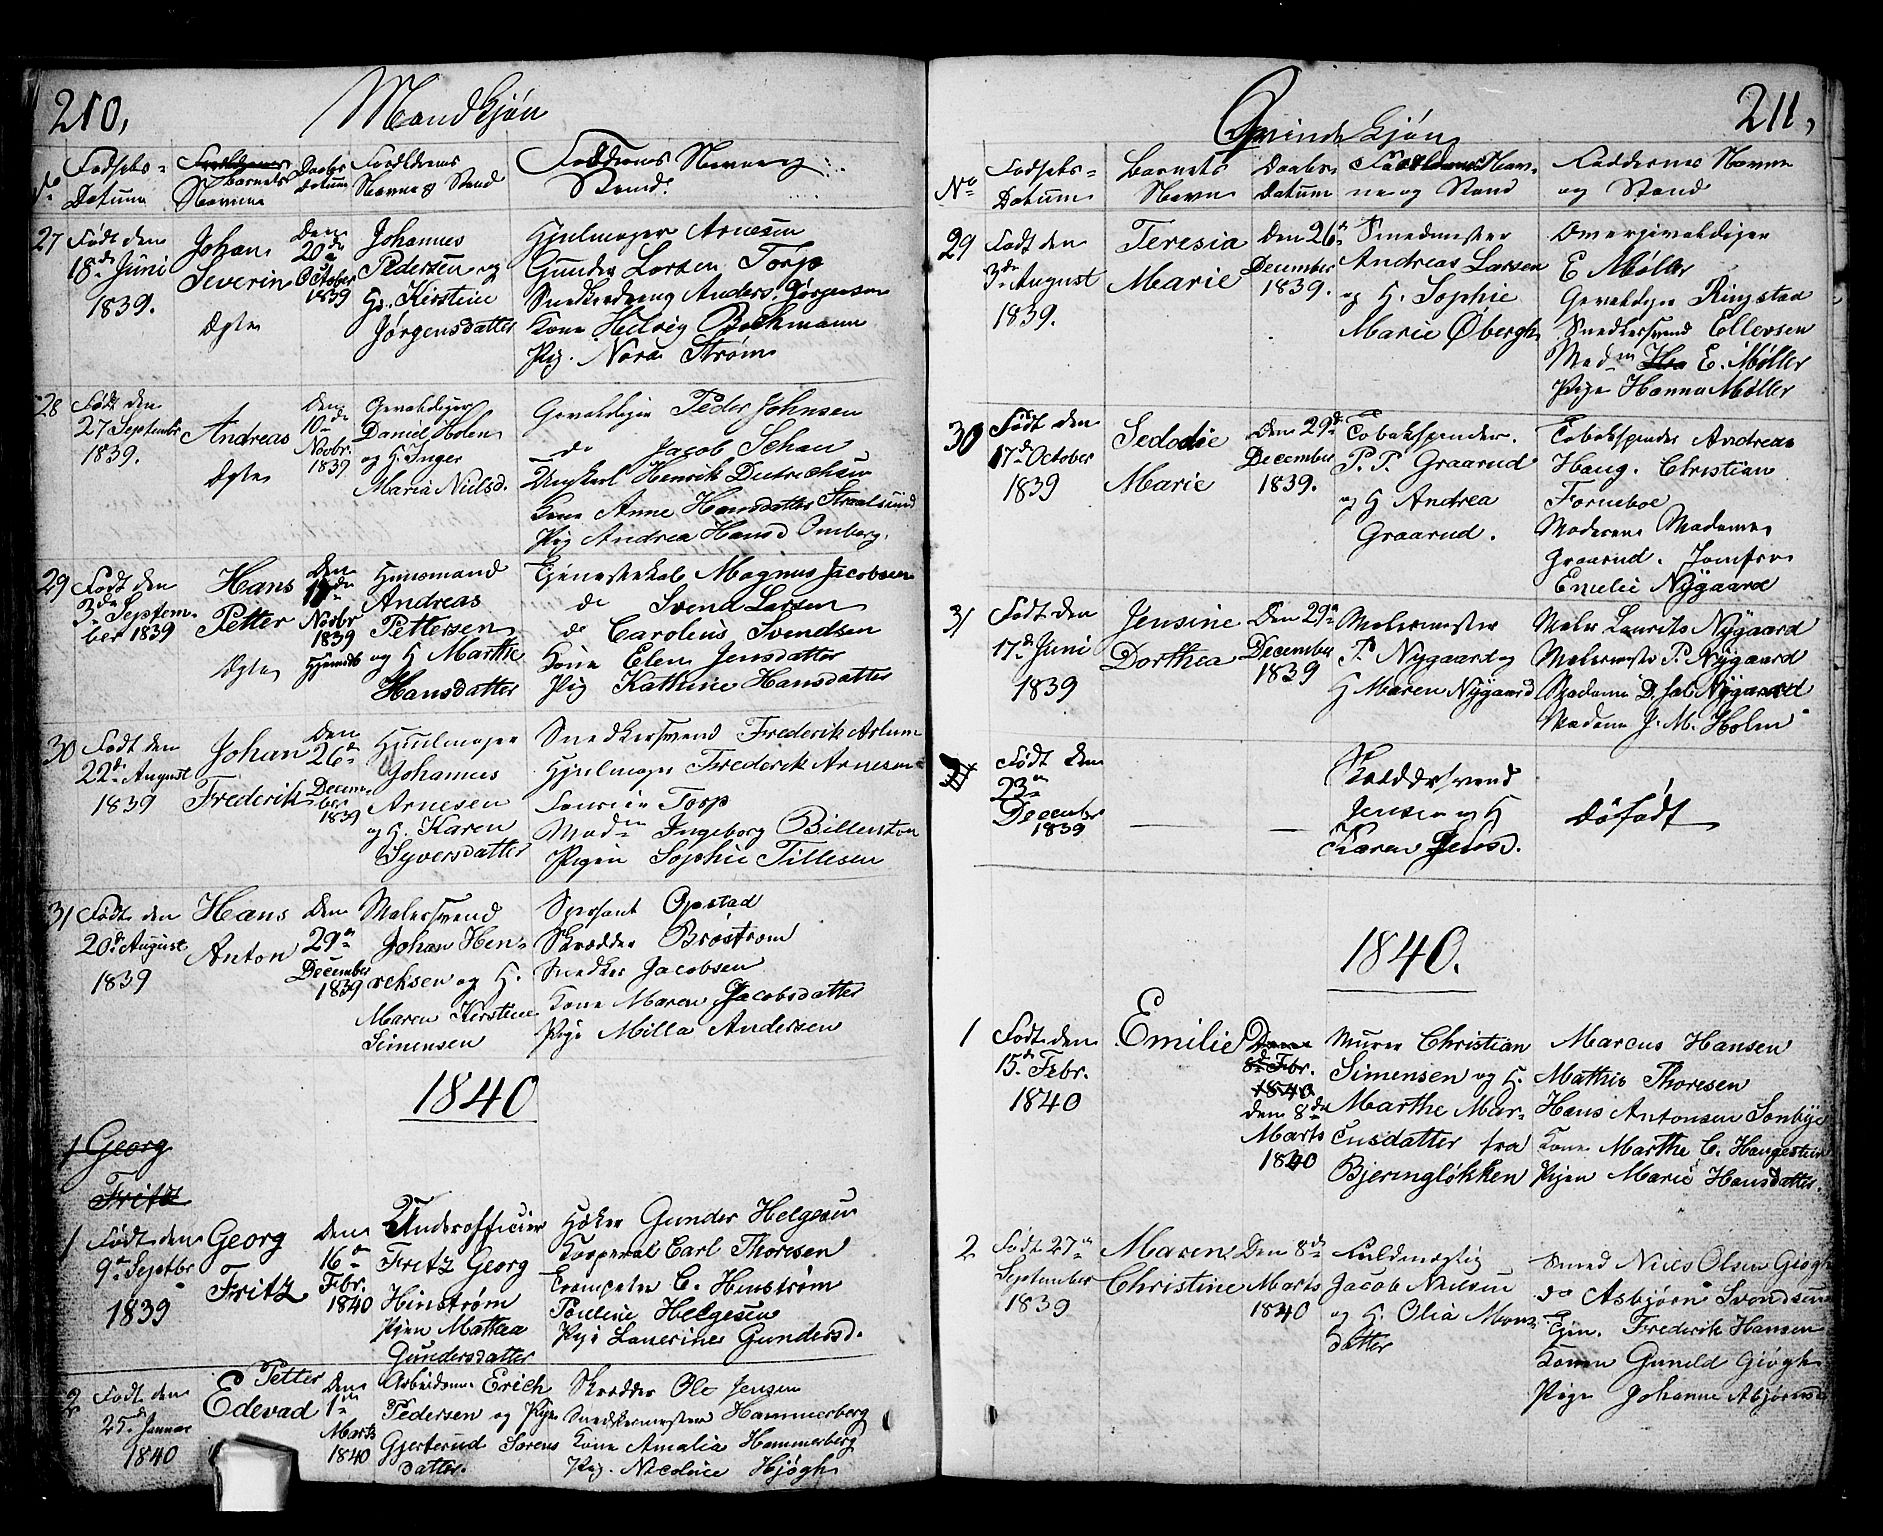 210,
Mandkjøn
No
Fødsels-
Datum
Forældrenes
barnets
Navne
Daabs
datum
Forældrenes
Navne & Stand
Faddernes Navne og
Stand.
27
Født den
18de Juni
1839.
Johan
Severin
Ægte
Den
20de
October
1839
Johannes
Pedersen og
H. Kirstine
Jørgensdatter
Hjulmager Arnesen
Gunder Larsen Torp
Snedkerdreng Anders Jørgensen
Kone Helvig Bockmann
Pig. Nora Strøm
28
Født den
27 Septembr
1839.
Andreas
Ægte
Den
10de
Novbr.
1839
Gevaldiger
Daniel Holen
og H. Inger
Maria Nielsd.
Gevaldigen Peder Johnsen
do Jacob Schau
Ungkarl Henrik Diedrichsen
Kone Anne Hansdatter Straalsund
Pig Andrea Hansd Omberg.
29
Født den
3de Septem-
ber 1839
Hans
Petter
Ægte
Den
Novbr
1839
Hjemdt
Huusmand
Andreas
Pettersen
og H Marthe
Hansdatter
Tjenestekarl Magnus Jacobsen
do Svend Larsen
do Carolius Svendsen
Kone Elen Jensdatter
Pig Kathrine Hansdatter
30
Født den
22de August
1839
Johan
Frederik
Den
26de
Decem-
ber
1839
Hjulmager
Johannes
Arnesen
og H. Karen
Syversdatter
Snedkersvend Frederik Aslum
Hjulmager Frederik Arnesen
Fourier Torp
Madme Ingeborg Billenston
Pigen Sophie Tillesen
31
Født den
20de August
1839
Hans
Anton
Den
29de
December
1839
Malersvend
Johan Hen-
rchsen og H.
Maren Kirstine
Simensen
Sersant Opstad
Skrædder Brostrøm
Snedker Jacobsen
Kone Maren Jacobsdatter
Pige Milla Andersen
1840
1 Georg
Fritz
1
Født den
9de Septbr
1839
Georg
Fritz
Den
16de
Febr.
1840
Underofficier
Fritz Georg
Hinstrøm
Pigen Mathea
Gundersdatter
Høker Gunder Helgesen
Korporal Carl Thoresen
Trompeter C. Henstrøm
Pouline Helgesen
Pige Laverine Gundersd.
2
Født den
25de Januar
1840
Petter
Edevad
Den
1ste
Marts
1840
Arbeidsm. Erich
Pedersen og Pige
Gjertrud Sørens
datter.
Skrædder Ole Jensen
Snedkermester Hammerberg
Kone Amalia Hammerberg
Pig. Nicoline Hjøgh
211,
Qvindekjøn
No
Fødsels-
Datum
Barnets
Navn
Daabs-
Datum
Forældrenes Nav-
ne og Stand
Faddernes Navne
og Stand
29
Født den
3de August
1839.
Teresia
Marie
Den 26de
December
1839.
Smedmester
Andreas Larsen
og H. Sophie
Marie Øbergh
Overgivaldiger
E Møller
Gevaldiger Ringstad
Snedkersvend Ellevsen
Madm Ha E. Møller
Pige Hanna Møller
30
Født den
17de October
1839
Sedodie
Marie
Den 29de
December
1839.
Tobakspinder.
P. P. Graarud
og H Andrea
Graarud.
Tobakspinder Andreas
Haug. Christian
Forneboe
Moderen Madame
Graarud. Jomfru
Emelie Nygaard
31
Født den
17de Juni
1839
Jensine
Dorthea
Den 29de
December
1839
Malermester
P. Nygaard og
H Maren Nygaard
Maler Laurits Nygaard
Malermester P. Nygaard
Madame D. Sal. Nygaard
Madame J. M. Holm
Født den
23de
December
1839
—
—
Skræddersvend
Jensen og H
Karen Jensd.
dødfødt
1840.
1
Født den
15de Febr.
1840
Emilie
Den
8de Febr.
1840
den 8de
Marts
1840
Murer Christian
Simensen og H.
Marthe Mar-
cusdatter fra
Bjeringløkken
Marcus Hansen
Mathis Thoresen
Hans Antonsen Sonbye
Kone Marthe C. Haugestuen
Pigen Marie Hansdatter.
2
Født 27de
September
1839
Maren
Christine
Den 8de
Marts
1840
Fuldmægtig
Jacob Nielsen
og H. Olia Mons
datter
Smed Niels Olsen Giøgh
do Asbjørn Svendsen
Tjen. Frederik Hansen
Konen Guneld Giøgh
Pige Johanne Abjørnsd